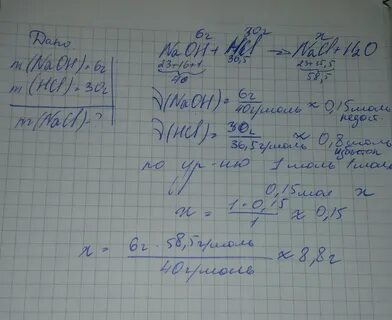 Дано
m(NaOH)=6г
m(HCl)=30г
m(NaCl)-?
6г 30г x
NaOH + HCl → NaCl + H2O
23+16+1 36,5 23+35,5
40 58,5
ν(NaOH) = 6г / 40г/моль ≈ 0,15моль
недост.
ν(HCl) = 30г / 36,5г/моль ≈ 0,8моль
избыток
по ур-нию 1 моль 1 моль
0,15мол x
x = 1·0,15 / 1 ≈ 0,15
x = 6г · 58,5г/моль / 40г/моль ≈ 8,8г